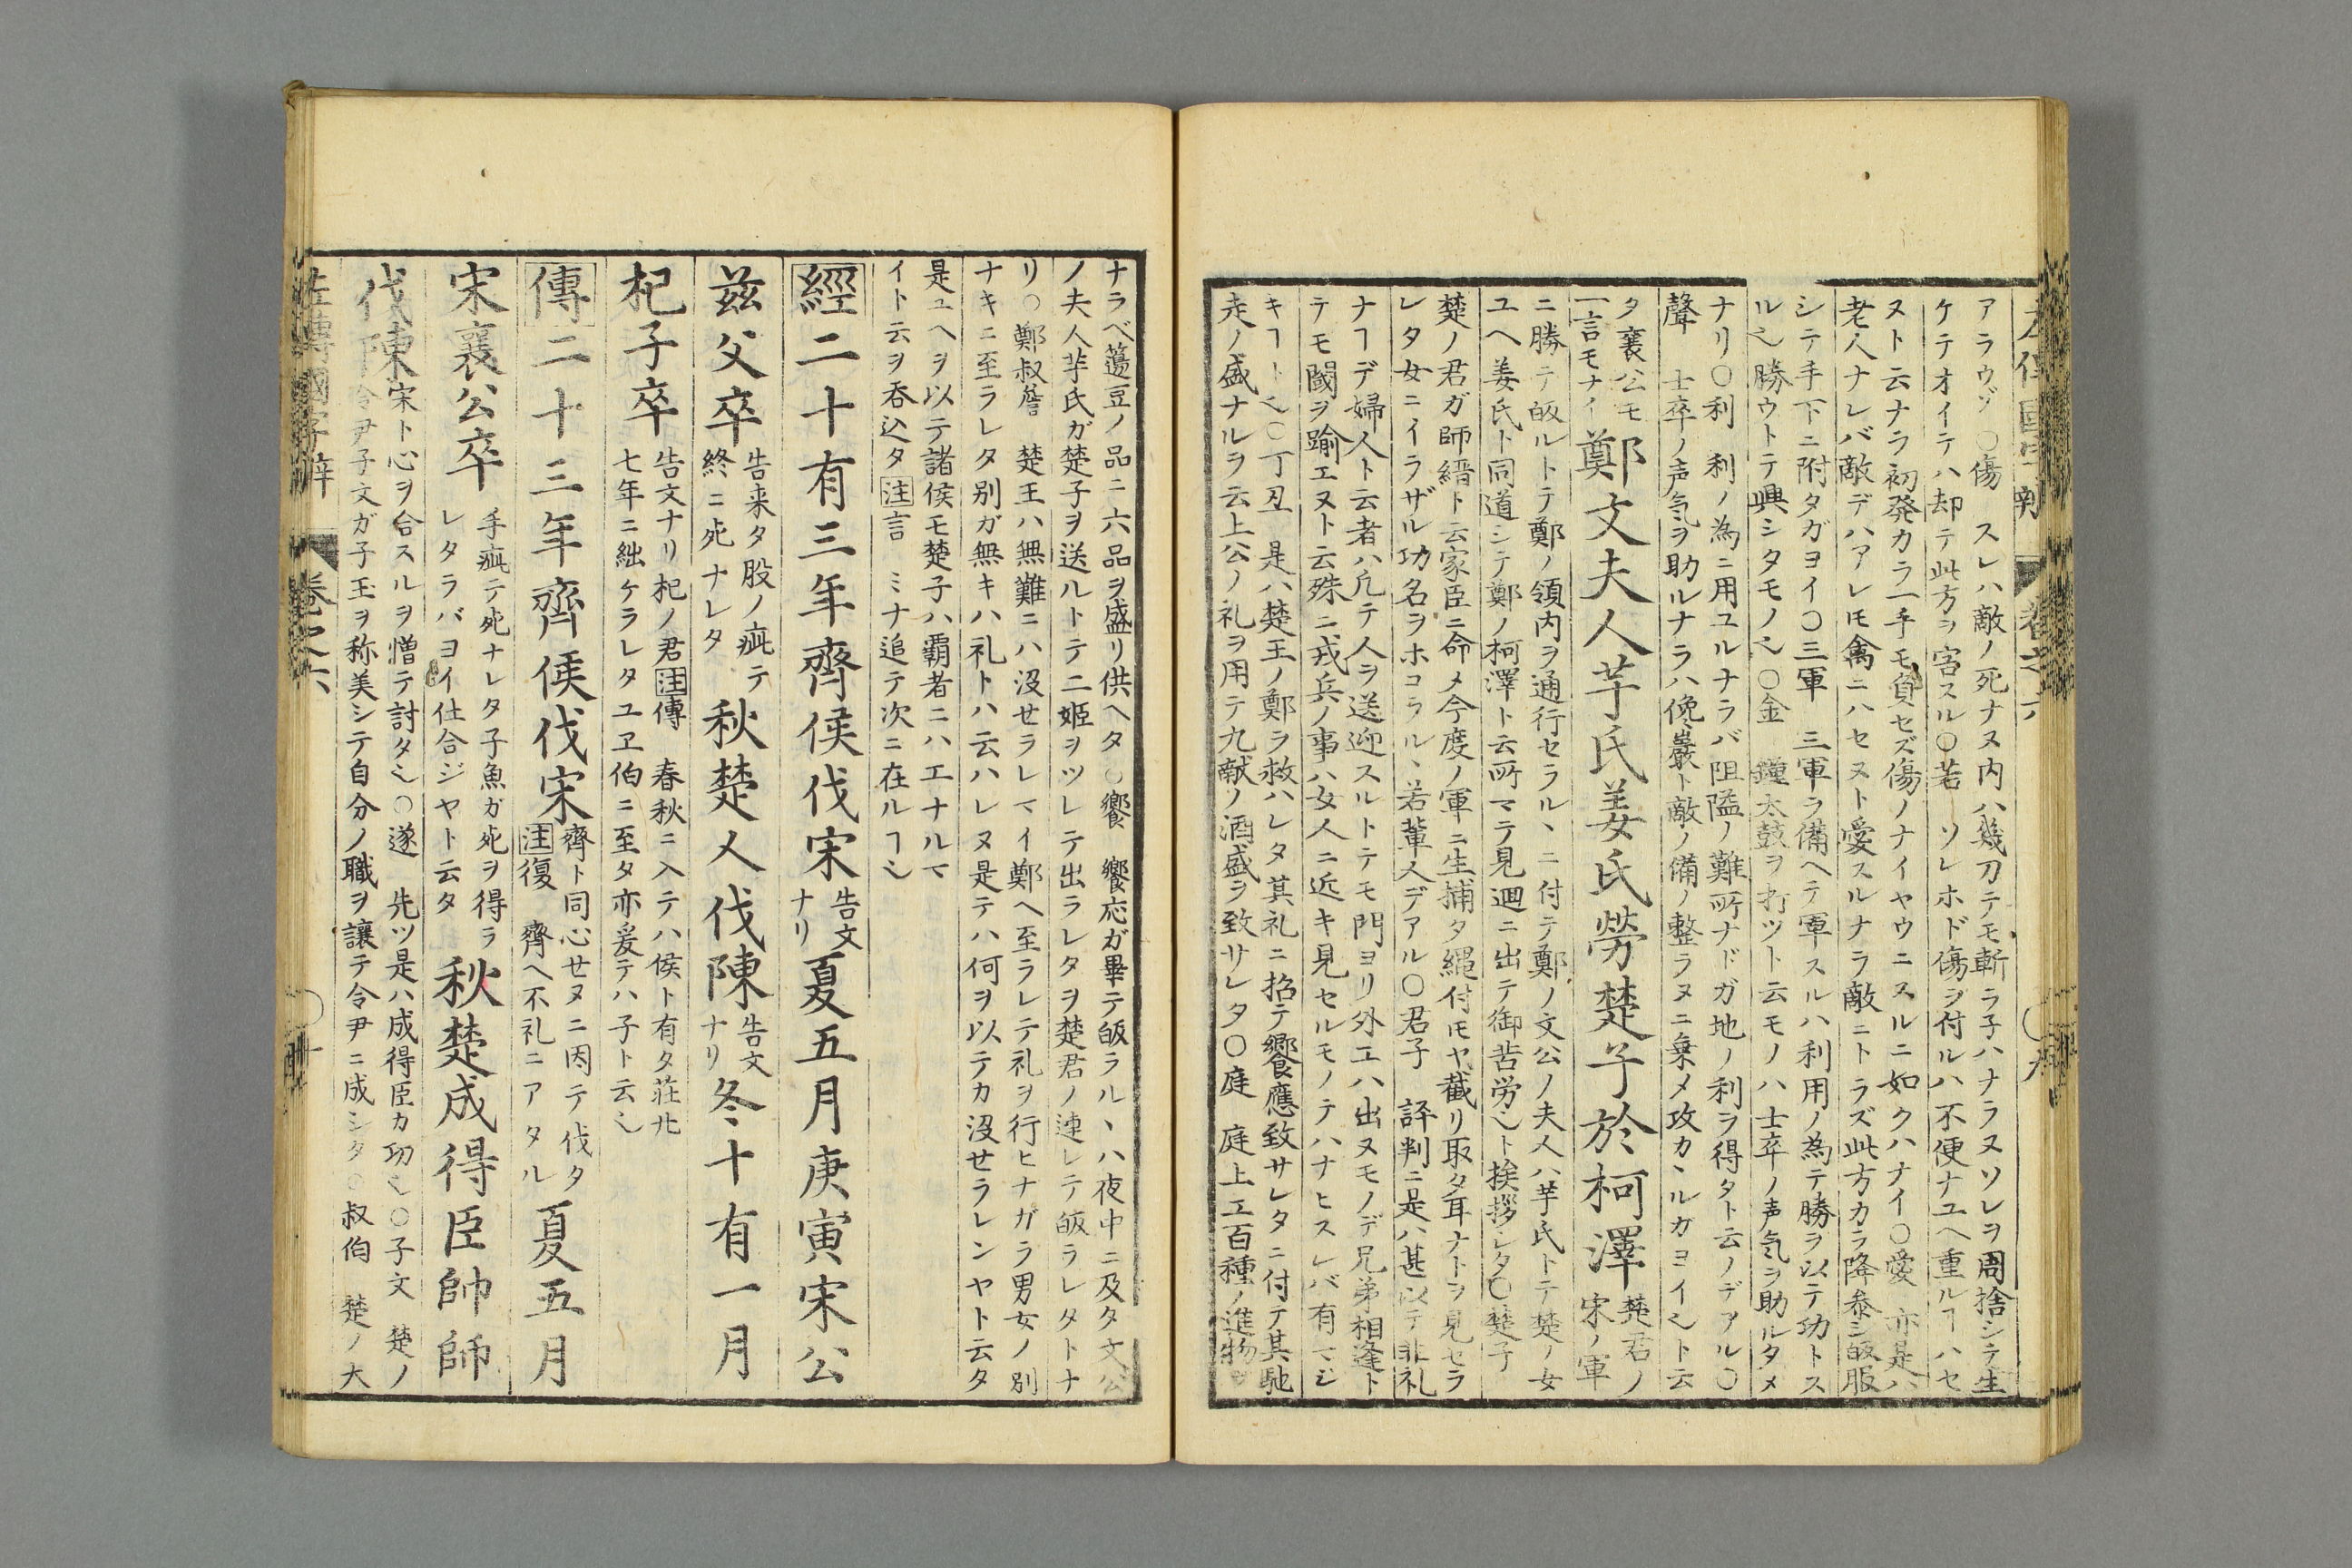 左傳國字解 卷之六 〇九
アラウゾ〇傷 スレハ敵ノ死ナヌ内ハ幾刀テモ斬ラ子ハナラヌソレヲ周捨シテ生
ケテオイテハ却テ此方ヲ害スル〇若 ソレホド傷ヲ付ルハ不便ナユヘ重ルヿハセ
ヌト云ナラ初発カラ一手モ負セズ傷ノナイヤウニスルニ如クハナイ〇愛 亦是ハ
老人ナレバ敵デハアレ𪜈禽ニハセヌト愛スルナラ敵ニトラズ此方カラ降参シ皈服
シテ手下ニ附タガヨイ〇三軍 三軍ヲ備ヘテ軍スルハ利用ノ為テ勝ヲ以テ功トス
ル也勝ウトテ興シタモノ也〇金 鐘太鼓ヲ打ツト云モノハ士卒ノ声気ヲ助ルタメ
ナリ〇利 利ノ為ニ用ユルナラバ阻隘ノ難所ナドガ地ノ利ヲ得タト云ノデアル〇
聲 士卒ノ声気ヲ助ルナラハ儳巖ト敵ノ備ノ整ラヌニ乗メ攻カヽルガヨイ也ト云
タ襄公モ
一言モナイ
鄭文夫人芊氏姜氏勞楚子於柯澤
楚君ノ
宋ノ軍
ニ勝テ皈ルトテ鄭ノ領内ヲ通行セラルヽニ付テ鄭ノ文公ノ夫人ハ芊氏トテ楚ノ女
ユヘ姜氏ト同道シテ鄭ノ柯澤ト云所マテ見廻ニ出テ御苦労也ト挨拶シタ〇楚子
楚ノ君ガ師縉ト云家臣ニ命メ今度ノ軍ニ生捕タ縄付𪜈ヤ截リ取タ耳ナトヲ見セラ
レタ女ニイラザル功名ヲホコラルヽ若輩人デアル〇君子 評判ニ是ハ甚以テ非礼
ナヿデ婦人ト云者ハ凢テ人ヲ送迎スルトテモ門ヨリ外エハ出ヌモノデ兄弟相逢ト
テモ閾ヲ踰エヌト云殊ニ戎兵ノ事ハ女人ニ近キ見セルモノテハナヒスレバ有マジ
キヿト也〇丁丑 是ハ楚王ノ鄭ヲ救ハレタ其礼ニ招テ饗應致サレタニ付テ其馳
走ノ盛ナルヲ云上公ノ礼ヲ用テ九献ノ酒盛ヲ致サレタ〇庭 庭上エ百種ノ進物ヲ
ナラベ籩豆ノ品ニ六品ヲ盛リ供ヘタ〇饗 饗応ガ畢テ皈ラルヽハ夜中ニ及タ文公
ノ夫人芊氏ガ楚子ヲ送ルトテ二姫ヲツレテ出ラレタヲ楚君ノ連レテ皈ラレタトナ
リ〇鄭叔詹 楚王ハ無難ニハ沒せラレマイ鄭ヘ至ラレテ礼ヲ行ヒナガラ男女ノ別
ナキニ至ラレタ別ガ無キハ礼トハ云ハレヌ是テハ何ヲ以テカ沒せラレンヤト云タ
是ユヘヲ以テ諸侯モ楚子ハ覇者ニハエナルマ
イト云ヲ呑込タ注言 ミナ追テ次ニ在ルヿ也
經二十有三年齊侯伐宋
告文
ナリ
夏五月庚寅宋公
茲父卒
告来タ股ノ疵テ
終ニ死ナレタ
秋楚人伐陳
告文
ナリ
冬十有一月
杞子卒
告文ナリ杞ノ君注傳 春秋ニ入テハ侯ト有タ荘廾
七年ニ絀ケラレタユヱ伯ニ至タ亦爰テハ子ト云也
傳二十三年齊侯伐宋
齊ト同心せヌニ因テ伐タ
注復 齊ヘ不礼ニアタル
夏五月
宋襄公卒
手疵テ死ナレタ子魚ガ死ヲ得ラ
レタラバヨイ仕合ジヤト云タ
秋楚成得臣帥師
伐陳
宋ト心ヲ合スルヲ憎テ討タ也〇遂 先ツ是ハ成得臣カ功也〇子文 楚ノ
令尹子文ガ子玉ヲ称美シテ自分ノ職ヲ讓テ令尹ニ成シタ〇叔伯 楚ノ大
左傳國字解 卷之六 〇十